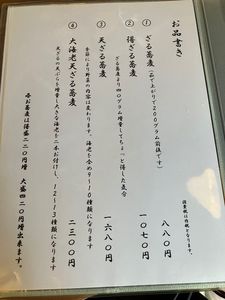 お品書き
消費税は内税となります。
① ざる蕎麦(ゆで上がりで200グラム前後です) 八八〇円
② 得ざる蕎麦 一〇七〇円
ざる蕎麦より四〇グラム増量してちょっと得した気分
③ 天ざる蕎麦 一六八〇円
季節により野菜の内容は変わります。海老を含め9～10種類になります
④ 大海老天ざる蕎麦 二三〇〇円
天ざるの天ぷらを増量し大きな海老を二本お付けし、12～13種類になります
毎お蕎麦は得盛二二〇円増 大盛四二〇円増出来ます。